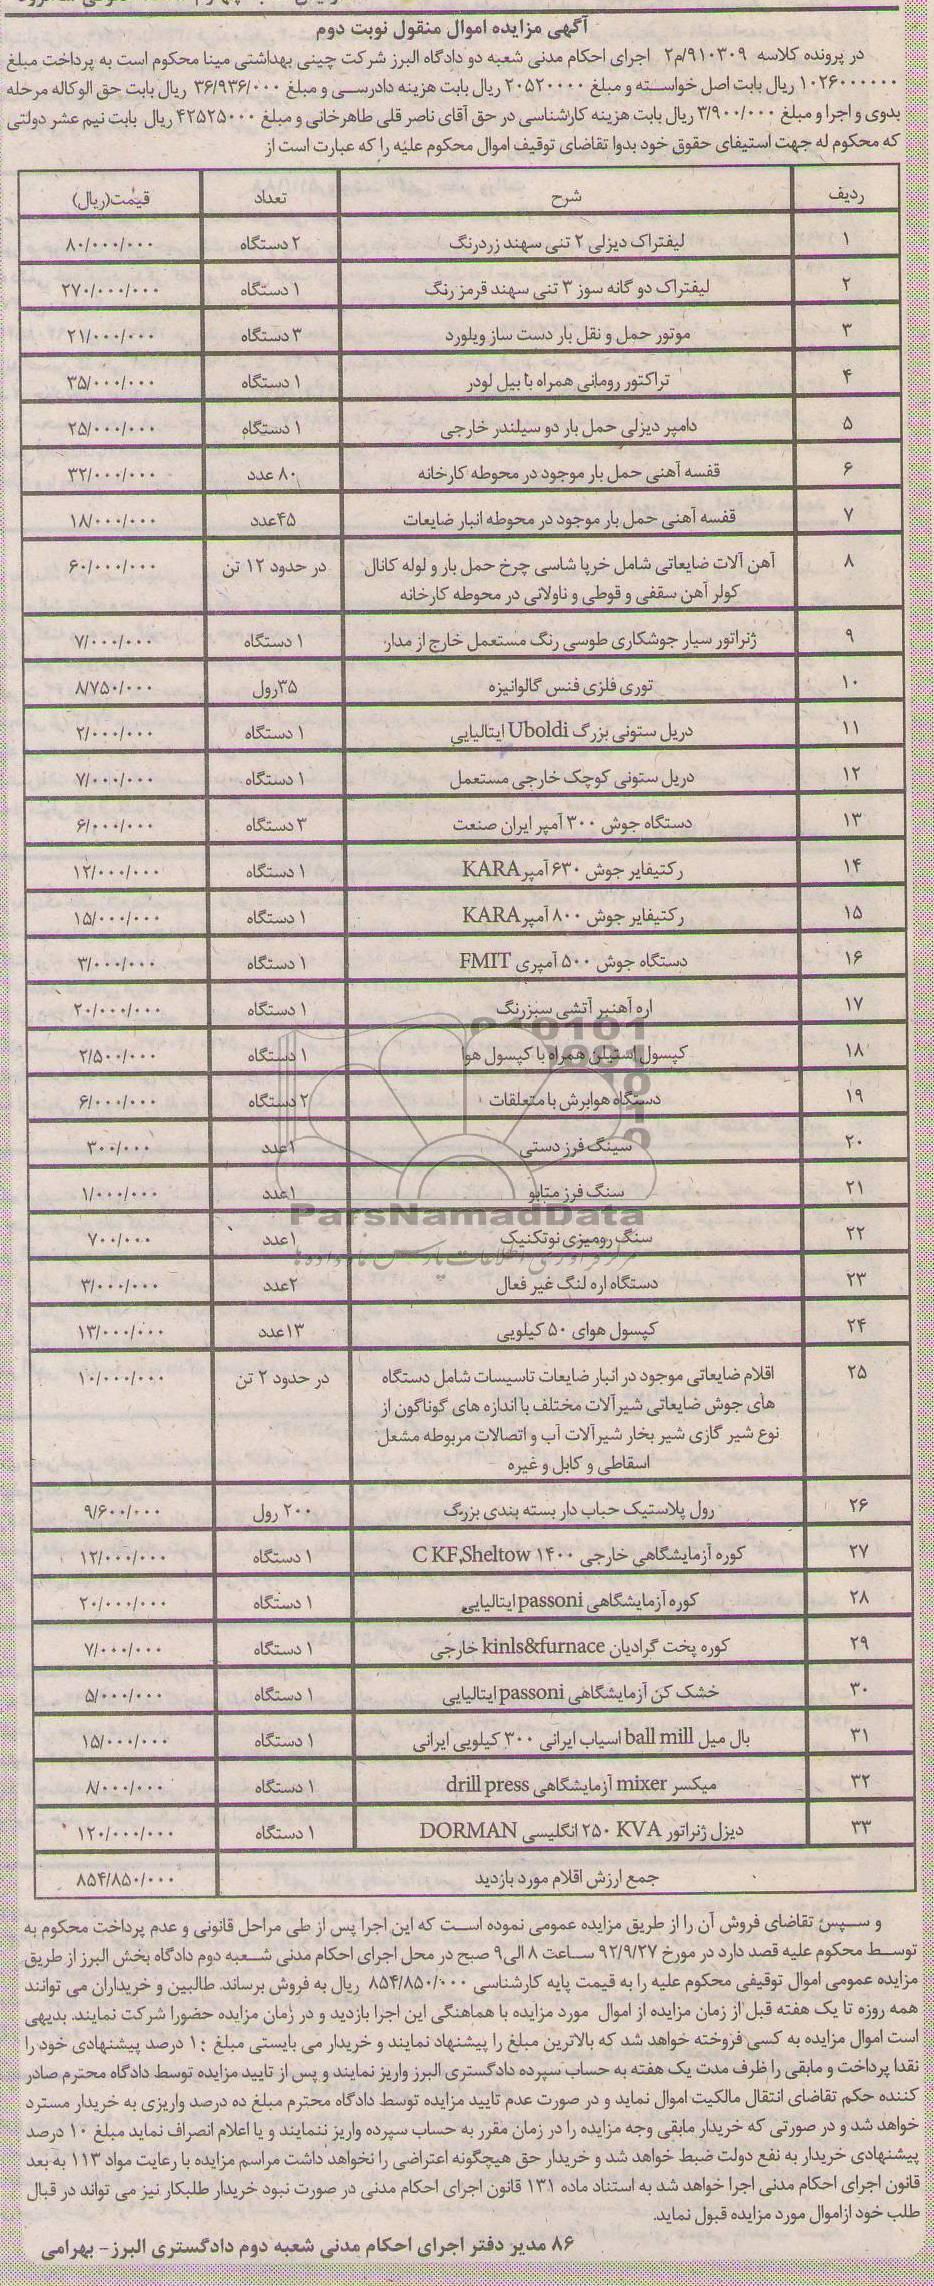 آگهی مزایده اموال منقول نوبت دوم
در پرونده کلاسه ۹۱۰۳۰۹/م۲ اجرای احکام مدنی شعبه دو دادگاه البرز شرکت چینی بهداشتی مینا محکوم است به پرداخت مبلغ
۱۰۲۶۰۰۰۰۰۰ ریال بابت اصل خواسته و مبلغ ۲۰۵۲۰۰۰۰ ریال بابت هزینه دادرسی و مبلغ ۳۶/۹۳۶/۰۰۰ ریال بابت حق الوکاله مرحله
بدوی و اجرا و مبلغ ۳/۹۰۰/۰۰۰ ریال بابت هزینه کارشناسی در حق آقای ناصر قلی طاهرخانی و مبلغ ۴۲۵۲۵۰۰۰ ریال بابت نیم عشر دولتی
که محکوم له جهت استیفای حقوق خود بدوا تقاضای توقیف اموال محکوم علیه را که عبارت است از
ردیف شرح تعداد قیمت(ریال)
۱ لیفتراک دیزلی ۲ تنی سهند زردرنگ ۲ دستگاه ۸۰/۰۰۰/۰۰۰
۲ لیفتراک دو گانه سوز ۳ تنی سهند قرمز رنگ ۱ دستگاه ۲۷۰/۰۰۰/۰۰۰
۳ موتور حمل و نقل بار دست ساز ویلورد ۳ دستگاه ۲۱/۰۰۰/۰۰۰
۴ تراکتور رومانی همراه با بیل لودر ۱ دستگاه ۳۵/۰۰۰/۰۰۰
۵ دامپر دیزلی حمل بار دو سیلندر خارجی ۱ دستگاه ۲۵/۰۰۰/۰۰۰
۶ قفسه آهنی حمل بار موجود در محوطه کارخانه ۸۰ عدد ۳۲/۰۰۰/۰۰۰
۷ قفسه آهنی حمل بار موجود در محوطه انبار ضایعات ۴۵عدد ۱۸/۰۰۰/۰۰۰
۸ آهن آلات ضایعاتی شامل خرپا شاسی چرخ حمل بار و لوله کانال در حدود ۱۲ تن ۶۰/۰۰۰/۰۰۰
کولر آهن سقفی و قوطی و ناولانی در محوطه کارخانه
۹ ژنراتور سیار جوشکاری طوسی رنگ مستعمل خارج از مدار ۱ دستگاه ۷/۰۰۰/۰۰۰
۱۰ توری فلزی فنس گالوانیزه ۳۵رول ۸/۷۵۰/۰۰۰
۱۱ دریل ستونی بزرگ Uboldi ایتالیایی ۱ دستگاه ۲/۰۰۰/۰۰۰
۱۲ دریل ستونی کوچک خارجی مستعمل ۱ دستگاه ۷/۰۰۰/۰۰۰
۱۳ دستگاه جوش ۳۰۰ آمپر ایران صنعت ۳ دستگاه ۶/۰۰۰/۰۰۰
۱۴ رکتیفایر جوش ۶۳۰ آمپر KARA ۱ دستگاه ۱۲/۰۰۰/۰۰۰
۱۵ رکتیفایر جوش ۸۰۰ آمپر KARA ۱ دستگاه ۱۵/۰۰۰/۰۰۰
۱۶ دستگاه جوش ۵۰۰ آمپری FMIT ۱ دستگاه ۳/۰۰۰/۰۰۰
۱۷ اره آهنبر آتشی سبزرنگ ۱ دستگاه ۲۰/۰۰۰/۰۰۰
۱۸ کپسول استیلن همراه با کپسول هوا ۱ دستگاه ۲/۵۰۰/۰۰۰
۱۹ دستگاه هوابرش با متعلقات ۲ دستگاه ۶/۰۰۰/۰۰۰
۲۰ سینگ فرز دستی ۱عدد ۳۰۰/۰۰۰
۲۱ سنگ فرز متابو ۱عدد ۱/۰۰۰/۰۰۰
ParsNamadData
۲۲ سنگ رومیزی نوتکنیک ۱عدد ۷۰۰/۰۰۰
۲۳ دستگاه اره لنگ غیر فعال ۲عدد ۳/۰۰۰/۰۰۰
۲۴ کپسول هوای ۵۰ کیلویی ۱۳عدد ۱۳/۰۰۰/۰۰۰
۲۵ اقلام ضایعاتی موجود در انبار ضایعات تاسیسات شامل دستگاه در حدود ۲ تن ۱۰/۰۰۰/۰۰۰
های جوش ضایعاتی شیرآلات مختلف با اندازه های گوناگون از
نوع شیر گازی شیر بخار شیرآلات آب و اتصالات مربوطه مشعل
اسقاطی و کابل و غیره
۲۶ رول پلاستیک حباب دار بسته بندی بزرگ ۲۰۰ رول ۹/۶۰۰/۰۰۰
۲۷ کوره آزمایشگاهی خارجی ۱۴۰۰ C KF,Sheltow ۱ دستگاه ۱۲/۰۰۰/۰۰۰
۲۸ کوره آزمایشگاهی passoni ایتالیایی ۱ دستگاه ۲۰/۰۰۰/۰۰۰
۲۹ کوره پخت گرادیان kinls&furnace خارجی ۱ دستگاه ۷/۰۰۰/۰۰۰
۳۰ خشک کن آزمایشگاهی passoni ایتالیایی ۱ دستگاه ۵/۰۰۰/۰۰۰
۳۱ بال میل ball mill اسیاب ایرانی ۳۰۰ کیلویی ایرانی ۱ دستگاه ۱۵/۰۰۰/۰۰۰
۳۲ میکسر mixer آزمایشگاهی drill press ۱ دستگاه ۸/۰۰۰/۰۰۰
۳۳ دیزل ژنراتور ۲۵۰ KVA انگلیسی DORMAN ۱ دستگاه ۱۲۰/۰۰۰/۰۰۰
جمع ارزش اقلام مورد بازدید ۸۵۴/۸۵۰/۰۰۰
و سپس تقاضای فروش آن را از طریق مزایده عمومی نموده است که این اجرا پس از طی مراحل قانونی و عدم پرداخت محکوم به
توسط محکوم علیه قصد دارد در مورخ ۹۲/۹/۲۷ ساعت ۸ الی۹ صبح در محل اجرای احکام مدنی شعبه دوم دادگاه بخش البرز از طریق
مزایده عمومی اموال توقیفی محکوم علیه را به قیمت پایه کارشناسی ۸۵۴/۸۵۰/۰۰۰ ریال به فروش برساند. طالبین و خریداران می توانند
همه روزه تا یک هفته قبل از زمان مزایده از اموال مورد مزایده با هماهنگی این اجرا بازدید و در زمان مزایده حضورا شرکت نمایند. بدیهی
است اموال مزایده به کسی فروخته خواهد شد که بالاترین مبلغ را پیشنهاد نمایند و خریدار می بایستی مبلغ ۱۰ درصد پیشنهادی خود را
نقدا پرداخت و مابقی را ظرف مدت یک هفته به حساب سپرده دادگستری البرز واریز نمایند و پس از تایید مزایده توسط دادگاه محترم صادر
کننده حکم تقاضای انتقال مالکیت اموال نماید و در صورت عدم تایید مزایده توسط دادگاه محترم مبلغ ده درصد واریزی به خریدار مسترد
خواهد شد و در صورتی که خریدار مابقی وجه مزایده را در زمان مقرر به حساب سپرده واریز ننمایند و یا اعلام انصراف نماید مبلغ ۱۰ درصد
پیشنهادی خریدار به نفع دولت ضبط خواهد شد و خریدار حق هیچگونه اعتراضی را نخواهد داشت مراسم مزایده با رعایت مواد ۱۱۳ به بعد
قانون اجرای احکام مدنی اجرا خواهد شد به استناد ماده ۱۳۱ قانون اجرای احکام مدنی در صورت نبود خریدار طلبکار نیز می تواند در قبال
طلب خود ازاموال مورد مزایده قبول نماید.
۸۶ مدیر دفتر اجرای احکام مدنی شعبه دوم دادگستری البرز- بهرامی